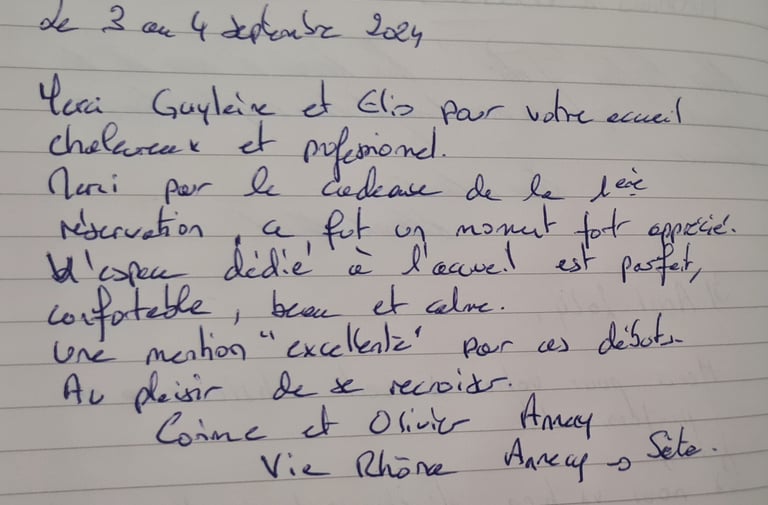 de 3 au 4 septembre 2024
Merci Guylaine et Elio pour votre accueil
chaleureux et professionnel.
Merci pour le cadeau de la 1ère
réservation, ce fut un moment fort apprécié.
L'espace dédié à l'accueil est parfait,
confortable, beau et calme.
Une mention "excellente" pour ces débuts.
Au plaisir de se recroiser.
et Olivier Annecy
Via Rhôna Annecy → Sète.